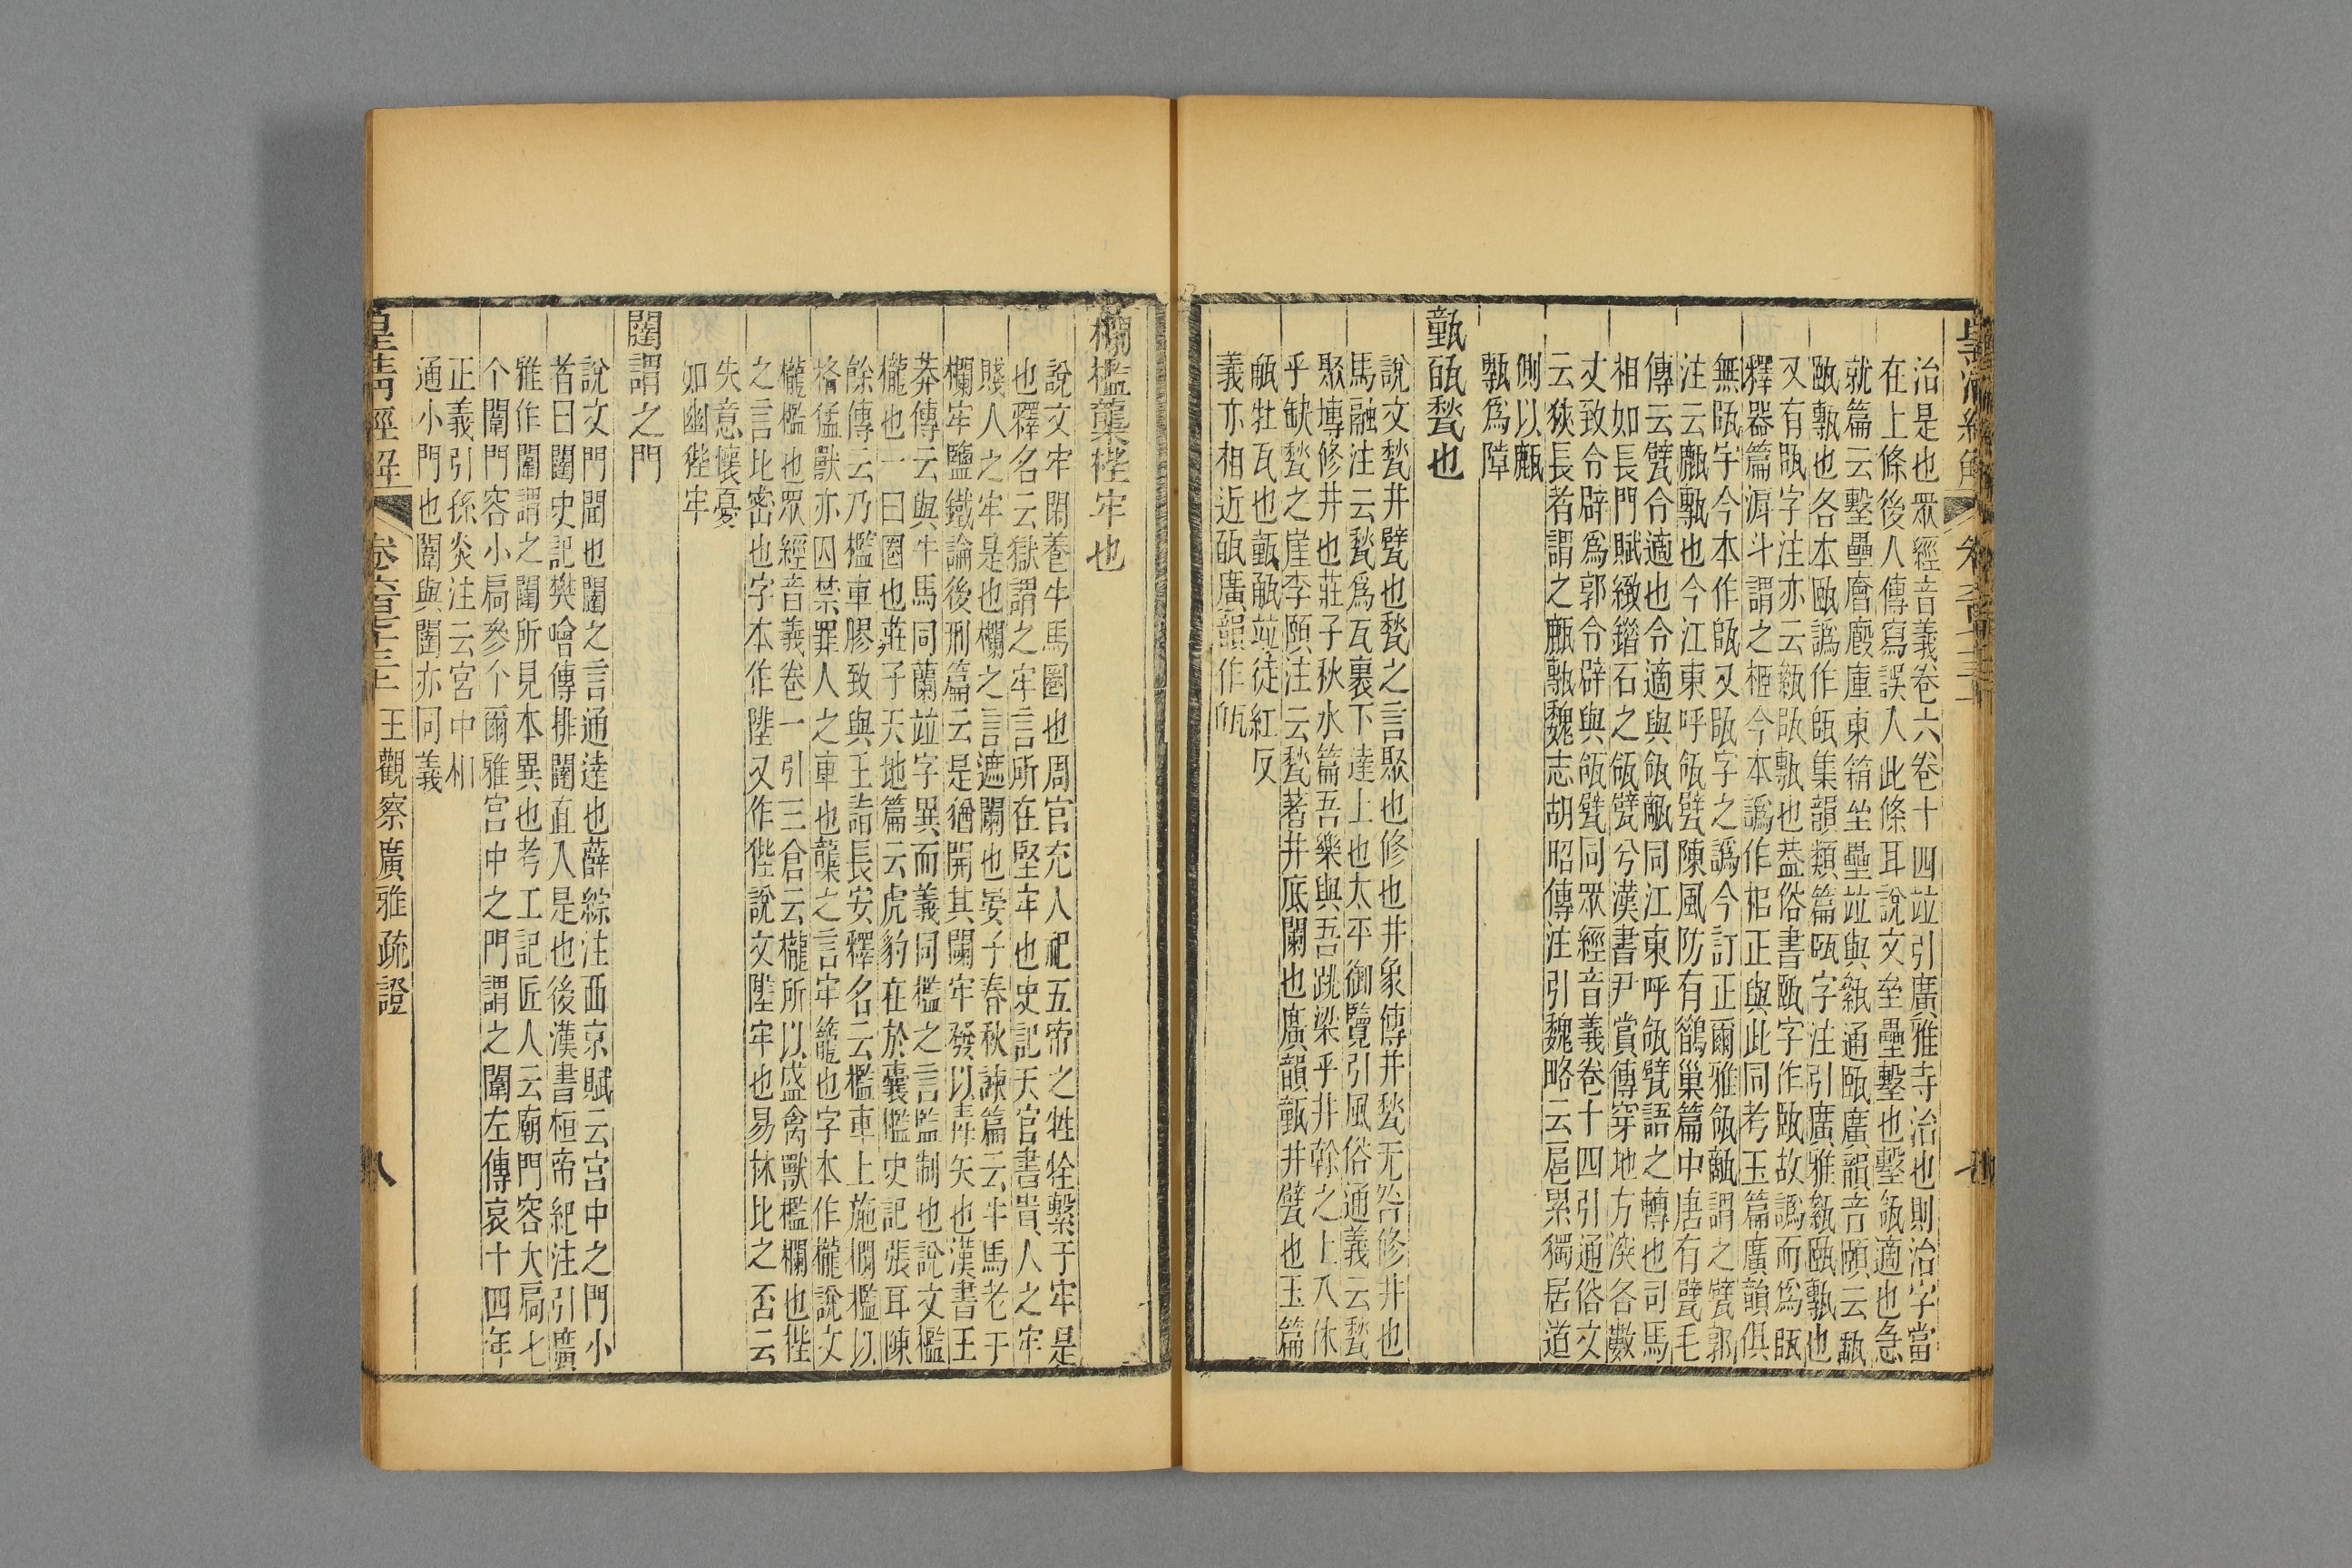 治是也眾經音義卷六卷十四竝引廣雅寺治也則治字當
在上條後人傳寫誤人此條耳說文垼壘墼也墼瓴適也急
就篇云墼壘廥廄庫東箱垼壘竝與㼤通甌廣韻音頤云瓵
甌甎也各本甌譌作瓿集韻類篇瓳字注引廣雅㼤甌甎也
又有瓹字注亦云㼤瓹甎也葢俗書甌字作䀍故譌而為瓹
釋器篇㵂斗謂之柩今本譌作柜正與此同考玉篇廣韻俱
無瓹字今本作瓿又瓹字之譌今訂正爾雅瓴甋謂之甓郭
注云㼾甎也今江東呼瓴甓陳風防有鵲巢篇中唐有甓毛
傳云甓令適也令適與瓴甋同江東呼瓴甓語之轉也司馬
相如長門賦緻錯石之瓴甓兮漢書尹賞傳穿地方深各數
丈致令辟為郭令辟與瓴甓同眾經音義卷十四引通俗文
云狹長者謂之㼾甎魏志胡昭傳注引魏略云扈累獨居道
側以㼾
甎為障
㽍瓳甃也
說文甃井甓也甃之言聚也修也井象傳井甃无咎修井也
馬融注云甃為瓦裏下達上也太平御覽引風俗通義云甃
聚塼修井也莊子秋水篇吾樂與吾跳梁乎井幹之上入休
乎缺甃之崖李頤注云甃著井底闌也廣韻㽍井甓也玉篇
㼧牡瓦也㽍㼧竝徒紅反
義亦相近瓳廣韻作㼚
欄檻蘢梐牢也
說文牢閑養牛馬圈也周官充人祀五帝之牲牷繫于牢是
也釋名云獄謂之牢言所在堅牢也史記天官書貴人之牢
賤人之牢是也欄之言遮闌也晏子春秋諫篇云牛馬老于
欄牢鹽鐵論後刑篇云是猶開其闌牢發以毒矢也漢書王
莽傳云與牛馬同蘭竝字異而義同檻之言監制也說文檻
櫳也一曰圈也莊子天地篇云虎豹在於囊檻史記張耳陳
餘傳云乃檻車膠致與王詣長安釋名云檻車上施欄檻以
格猛獸亦囚禁罪人之車也蘢之言牢籠也字本作櫳說文
櫳檻也眾經音義卷一引三倉云櫳所以盛禽獸檻欄也梐
之言比密也字本作陛又作狴說文陛牢也易林比之否云
失意懷憂
如幽狴牢
闥謂之門
說文門聞也闥之言通達也薛綜注西京賦云宮中之門小
者曰闥史記樊噲傳排闥直入是也後漢書桓帝紀注引廣
雅作闈謂之闥所見本異也考工記匠人云廟門容大扃七
个闈門容小扃參个爾雅宮中之門謂之闈左傳哀十四年
正義引孫炎注云宮中相
通小門也闈與闥亦同義
皇清經解 卷六百七十三上 王觀察廣雅疏證 八